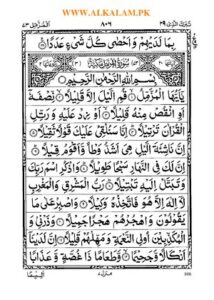 WWW.ALKALAM.PK
تبٰرك الذی ٢٩
٨٠٦
المزمل ٧٣
بِمَا لَدَيْهِمْ وَاَحْصٰى كُلَّ شَيْءٍ عَدَدًا
بِسْمِ اللّٰهِ الرَّحْمٰنِ الرَّحِيْمِ
يٰۤاَيُّهَا الْمُزَّمِّلُ قُمِ الَّيْلَ اِلَّا قَلِيْلًا نِّصْفَهٗۤ
اَوِ انْقُصْ مِنْهُ قَلِيْلًا اَوْ زِدْ عَلَيْهِ وَرَتِّلِ
الْقُرْاٰنَ تَرْتِيْلًا اِنَّا سَنُلْقِيْ عَلَيْكَ قَوْلًا ثَقِيْلًا
اِنَّ نَاشِئَةَ الَّيْلِ هِيَ اَشَدُّ وَطْـًٔا وَّاَقْوَمُ قِيْلًا
اِنَّ لَكَ فِي النَّهَارِ سَبْحًا طَوِيْلًا وَاذْكُرِ اسْمَ رَبِّكَ
وَتَبَتَّلْ اِلَيْهِ تَبْتِيْلًا رَبُّ الْمَشْرِقِ وَالْمَغْرِبِ
لَاۤ اِلٰهَ اِلَّا هُوَ فَاتَّخِذْهُ وَكِيْلًا وَاصْبِرْ عَلٰى مَا
يَقُوْلُوْنَ وَاهْجُرْهُمْ هَجْرًا جَمِيْلًا وَذَرْنِيْ وَ
الْمُكَذِّبِيْنَ اُولِي النَّعْمَةِ وَمَهِّلْهُمْ قَلِيْلًا اِنَّ لَدَيْنَاۤ
اَنْكَالًا وَّجَحِيْمًا وَّطَعَامًا ذَا غُصَّةٍ وَّعَذَابًا
اَلِيْمًا